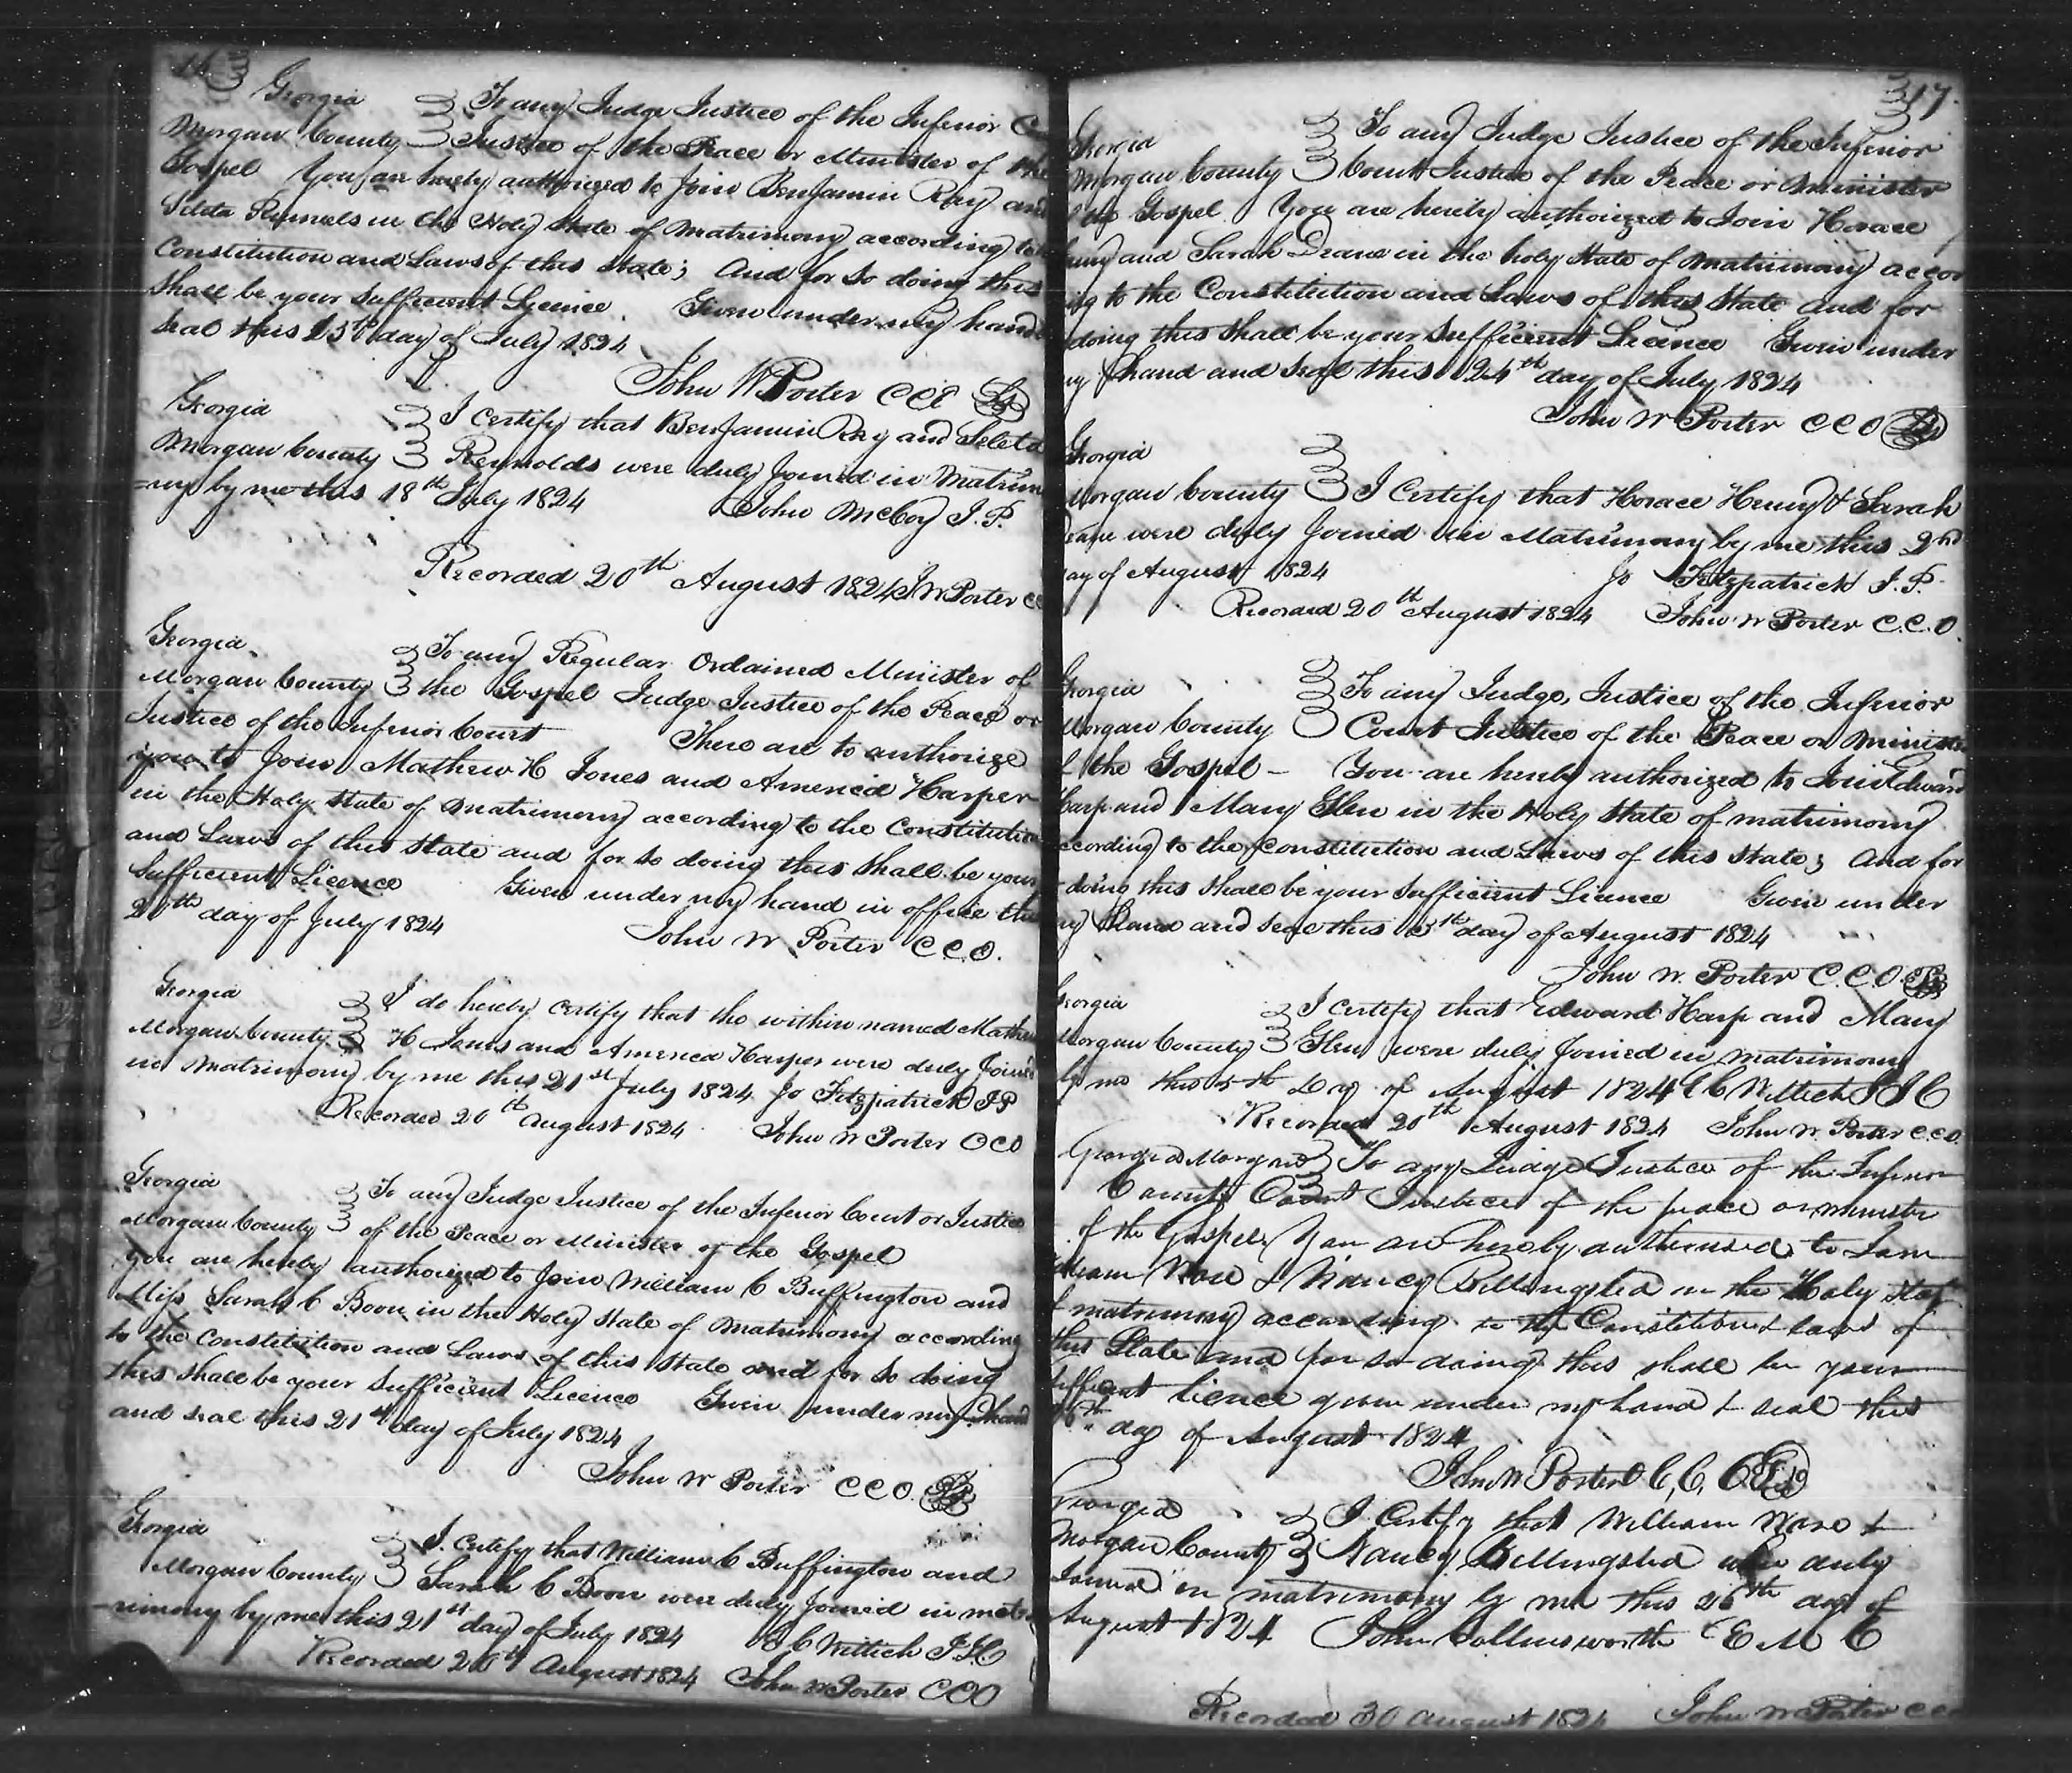 16
Georgia To any Judge Justice of the Inferior
Morgan County Justice of the Peace or Minister of the
Gospel You are hereby authorized to Join Benjamin Ray and
in the Holy State of Matrimony according to
Constitution and Laws of this State; And for so doing this
Shall be your sufficient Lycence. Given under my hand
seal this 15th day of July 1824
John W Porter CCO LS
Georgia I Certify that Benjamin Ray and Seleta
Morgan County Reynolds were duly Joined in Matrim
=ny by me this 18th July 1824 John McCoy J.P.
Recorded 20th August 1824 J W Porter
Georgia To any Regular Ordained Minister of
Morgan County the Gospel Judge Justice of the Peace or
Justice of the Inferior Court These are to authorize
you to Join Mathew H Jones and America Harper
in the Holy State of Matrimony according to the Constitution
and Laws of this State and for so doing this shall be your
Sufficient Licence Given under my hand in office this
20th day of July 1824 John W Porter C.C.O.
Georgia I do hereby Certify that the within named Mathew
Morgan County H Jones and America Harper were duly Joined
in Matrimony by me this 21st July 1824 Jo Fitzpatrick JP
Recorded 20th August 1824 John W Porter CCO
Georgia To any Judge Justice of the Inferior Court or Justice
Morgan County of the Peace or Minister of the Gospel
you are hereby authorized to Join William C Buffington and
Miss Sarah C Boon in the Holy State of Matrimony according
to the Constitution and Laws of this State and for so doing
this shall be your sufficient Licence Given under my hand
and seal this 21st day of July 1824
John W Porter CCO. LS
Georgia I Certify that William C Buffington and
Morgan County Sarah C Boon were duly Joined in mat
=rimony by me this 21st day of July 1824 Wittich
Recorded 20th August 1824 John W Porter CCO
17.
Georgia To any Judge Justice of the Inferior
Morgan County Court Justice of the Peace or Minister
of the Gospel You are hereby authorized to Join Horace
and Sarah Deane in the holy State of Matrimony accor
ing to the Constitution and Laws of this State and for
doing this shall be your sufficient Licence Given under
my hand and seal this 24th day of July 1824
John W Porter CCO LS
Georgia
Morgan County I Certify that Horace Henry & Sarah
Deane were duly Joined in Matrimony by me this 2nd
day of August 1824 Jo Fitzpatrick J.P.
Recorded 20th August 1824 John W Porter C.C.O.
Georgia To any Judge, Justice of the Inferior
Morgan County Court Justice of the Peace or Minister
of the Gospel - You are hereby authorized to Join Edward
Harp and Mary Glen in the Holy State of matrimony
according to the constitution and Laws of this State; And for
doing this shall be your sufficient Licence Given under
my Hand and seal this 5th day of August 1824
John W. Porter C.C.O. LS
Georgia I certify that Edward Harp and Mary
Morgan County Glen were duly Joined in matrimony
by me this 5th Day of August 1824 Wittich
Recorded 20th August 1824 John W. Porter C.C.O.
Georgia Morgan To any Judge Justice of the Inferior
County Court Justice of the peace or minister
of the Gospel You are hereby authorised to Join
& Nancy Billingslea in the Holy State
of matrimony according to the Constitution & laws of
this State and for so doing this shall be your
sufficient licence given under my hand & seal this
day of August 1824
John W Porter C, C, O LS
Georgia I Certify that William &
Morgan County Nancy Billingslea were duly
Joined in matrimony by me this 26th day of
August 1824 John Collinsworth E M C
Recorded 30 August 1824 John W Porter